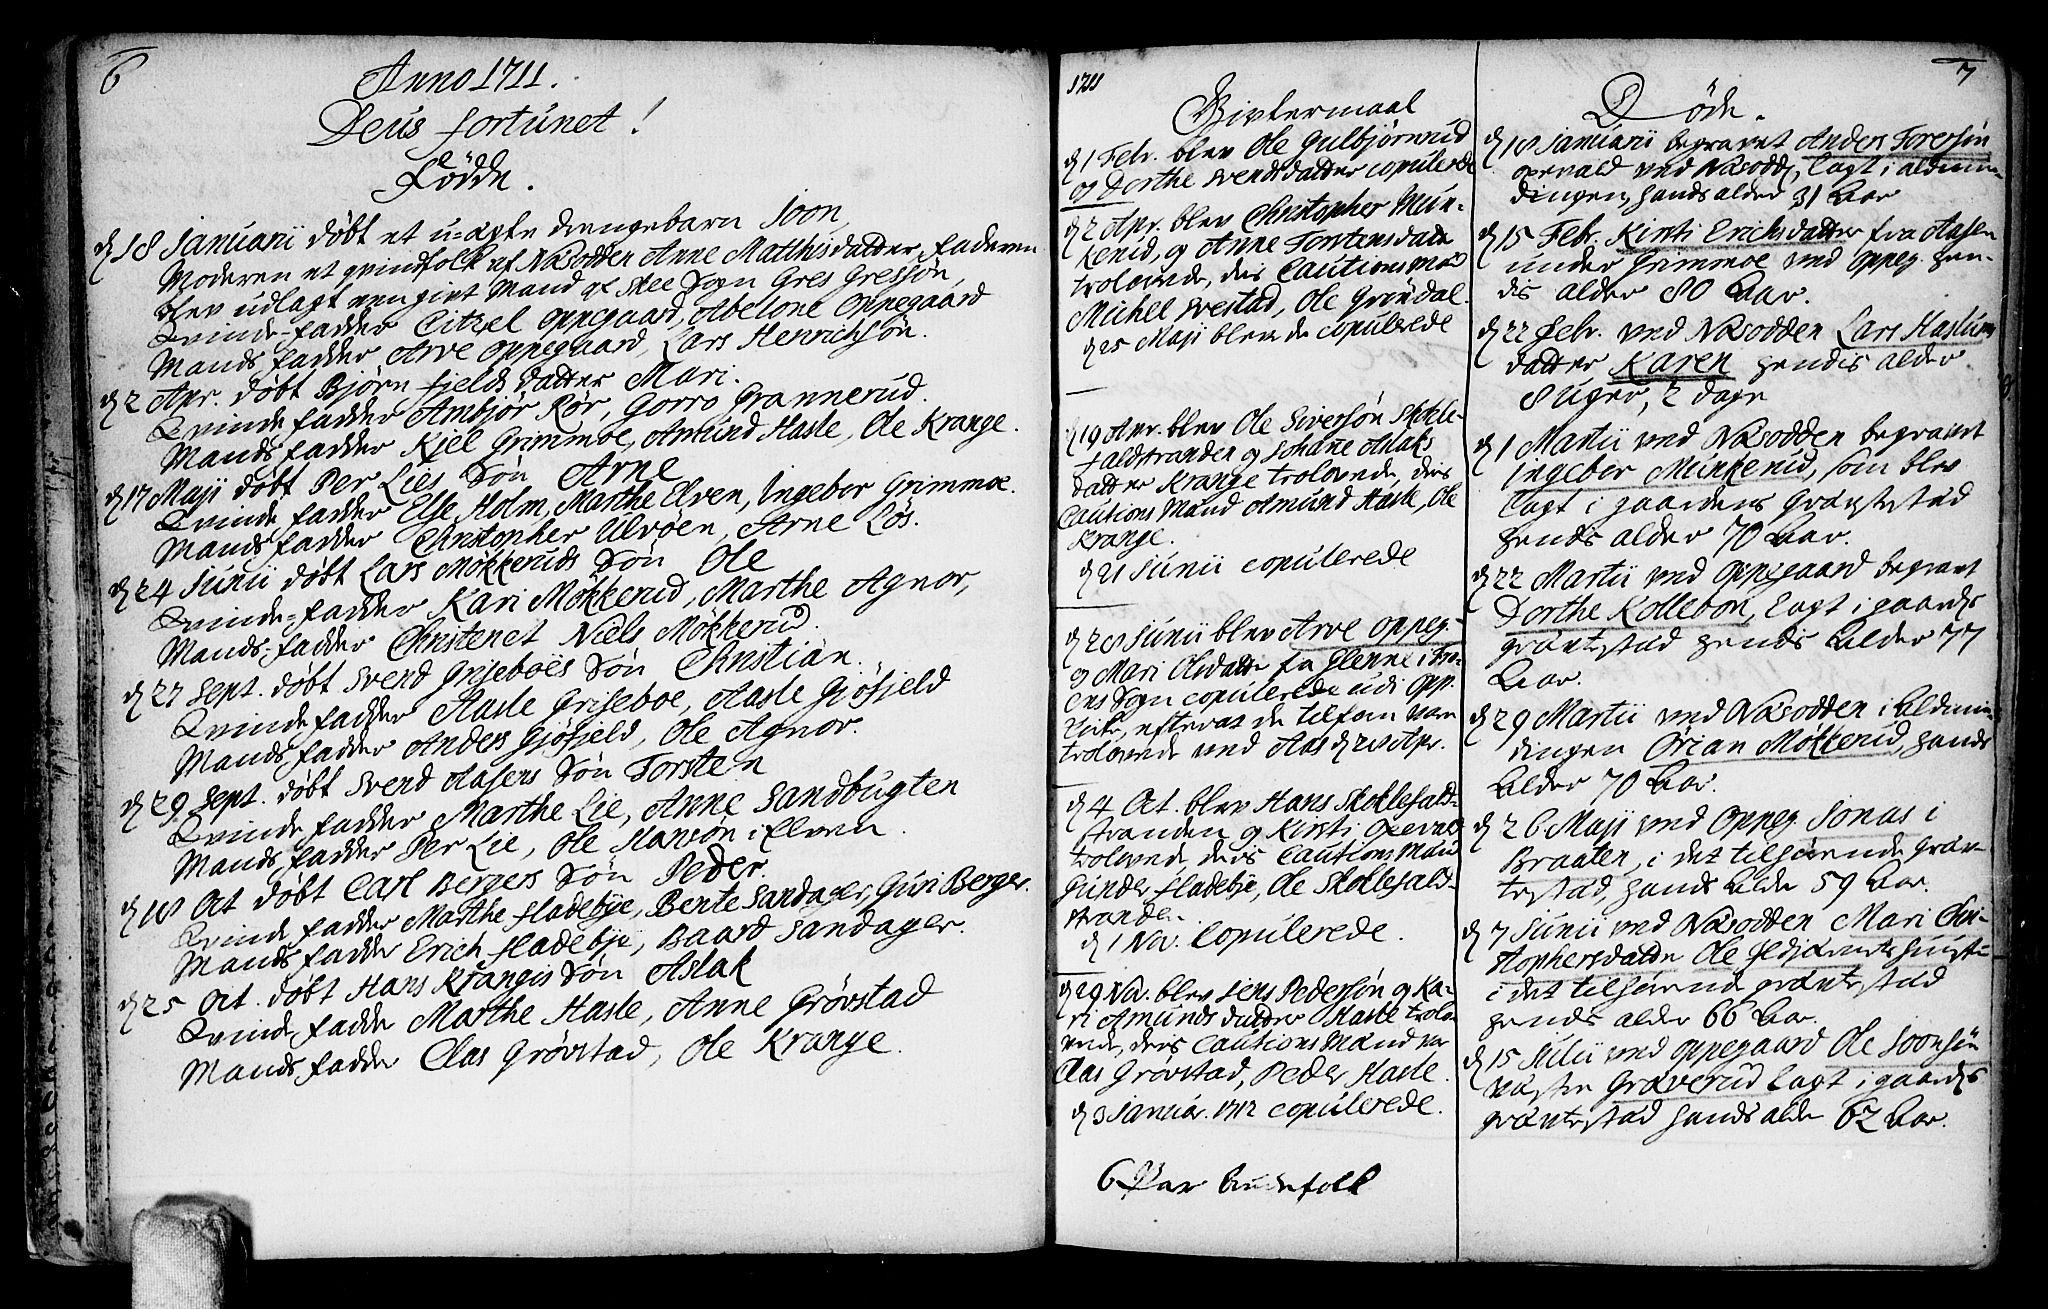 6
Anno 1711.
Deus fortunet!
Fødde.
d 18 Januarii døbt et u-ægte drengebarn Joon,
Moderen et qvindfolk af Næsodden Anne Matthisdatter, faderen
blev udlagt een givt Mand af Skee Sogn Gres Gressøn,
Qvinde-fadder Citzel Oppegaard, Abelone Oppegaard
Mands fadder Arve Oppegaard, Lars Henrichsøn.
d 2 Apr. døbt Bjørn fjelds datter Mari.
Qvinde fadder Ambjør Rør, Gorro Grannerud.
Mands fadder Kiel Grimmoe, Amund Hasle, Ole Krange.
d 17 Maji døbt Per Lies Søn Arne
Qvinde fadder Else Holm, Marthe Elven, Ingebor Grimmoe.
Mands fadder Christopher Ulvøen, Arne Løs.
d 24 Junii døbt Lars Møkkeruds Søn Ole
Qvinde-fadder Kari Møkkerud, Marthe Agnor,
Mands-fadder Christenet Niels Møkkerud.
d 27 Sept. døbt Svend Griseboes Søn Christian.
Qvinde fadder Aasle Griseboe, Aasle Gjøfjeld
Mands fadder Anders Gjøfjeld, Ole Agnor.
d 29 Sept. døbt Svend Aasens Søn Torsten
Qvinde fadder Marthe Lie, Anne Sandbugten
Mands fadder Per Lie, Ole Harvøn i Elven.
d 18 Oct døbt Carl Bergers Søn Peder.
Qvinde fadder Marthe fladebye, Bente Sandager, Guri Berger.
Mands fadder Erich fladebye, Baard Sandager.
d 25 Oct. døbt Hans Krangis Søn Aslak
Qvinde fadder Marthe Hasle, Anne Grøvstad
Mands fadder Clas Grøvstad, Ole Krange.
1711
Givtermaal
d 1 Febr. blev Ole Gulbjørnrud
og Dorthe Svendsdatter copulerede
d 2 Apr. blev Christopher Mun-
kerud, og Anne Torstensdatter
trolovede, des Cautions Mænd
Michel Svestad, Ole Grøndal.
d 25 Maji bleve de copulerede
d 19 Apr. blev Ole Siversøn Skokle-
faldstranden og Johane Aslaks
datter Krange trolovede, deris
Cautions Mand Amund Hasle, Ole
Krange.
d 21 Junii copulerede
d 28 Junii blev Arve Oppeg-
og Mari Olsdatter fra Glenne i Fro-
ens Sogn copulerede udi Opp.
kirke, efterat de tilforn vare
trolovede ved Aas d 28 Apr.
d 4 Oct. blev Hans Skoklefald-
stranden og Kirsti
trolovede, deris Cautions Mand
Gunder fladebye, Ole Skoklefald-
stranden
d 1 Nov. Copulerede.
d 29 Nov. blev Jens Pedersøn og Ka-
ri Amunds datter Hasle trolo-
vede, deris Cautions Mænd var
Clas Grøvstad, Peder Hasle.
d 3 Januar. 1712 copulerede.
6 Par brudefolk
7
Døde.
d 18 Januarii begravet Anders Toresøn
Opevald ved Næsodd, lagt i Almin-
dingen, hands alder 31 Aar
d 15 Febr. Kirsti Erichsdatter fra Aasen
under Grimmoe ved Oppeg. hen-
dis alder 80 Aar.
d 22 Febr. ved Næsodden Lars Haslums
datter Karen hendis alder
8 Uger, 2 dage
d 1 Martii ved Næsodden begravet
Ingebor Munkerud, som blev
lagt i gaardens gravsted
hends alder 70 Aar.
d 22 Martii ved Oppegaard begravet
Dorthe Kollebon, lagt i gaards
gravsted hends Alder 77
Aar.
d 29 Martii ved Næsodden i Almin-
dingen Ørian Møkkerud, hands
Alder 70 Aar.
d 26 Maji ved Oppeg. Jonas i
Braaten, i det tilhørende grav-
sted, hands Alder 59 Aar.
d 7 Junii ved Næsodden Mari Chri-
stophersdatter Ole
i det tilhørende gravsted
hends alder 66 Aar.
d 15 Julii ved Oppegaard Ole Joonsøn
Væstre Graverud lagt i gaards
gravsted hands alder 62 Aar.